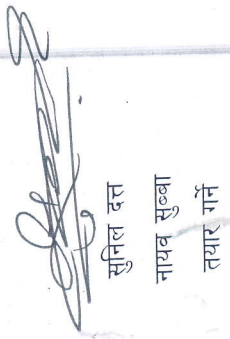 सुनिल दत्त
नायव सुब्बा
तयार गर्ने